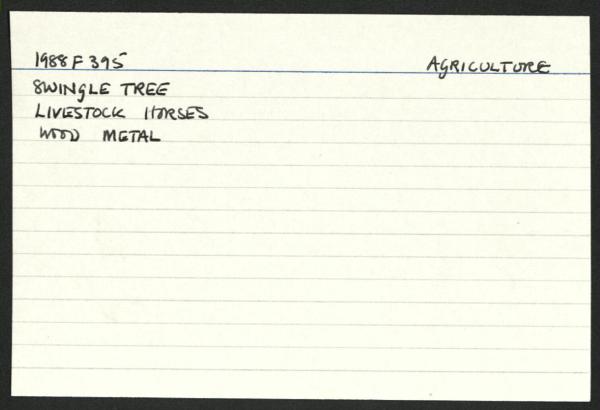 1988 F 395 AGRICULTURE
SWINGLE TREE
LIVESTOCK HORSES
WOOD METAL